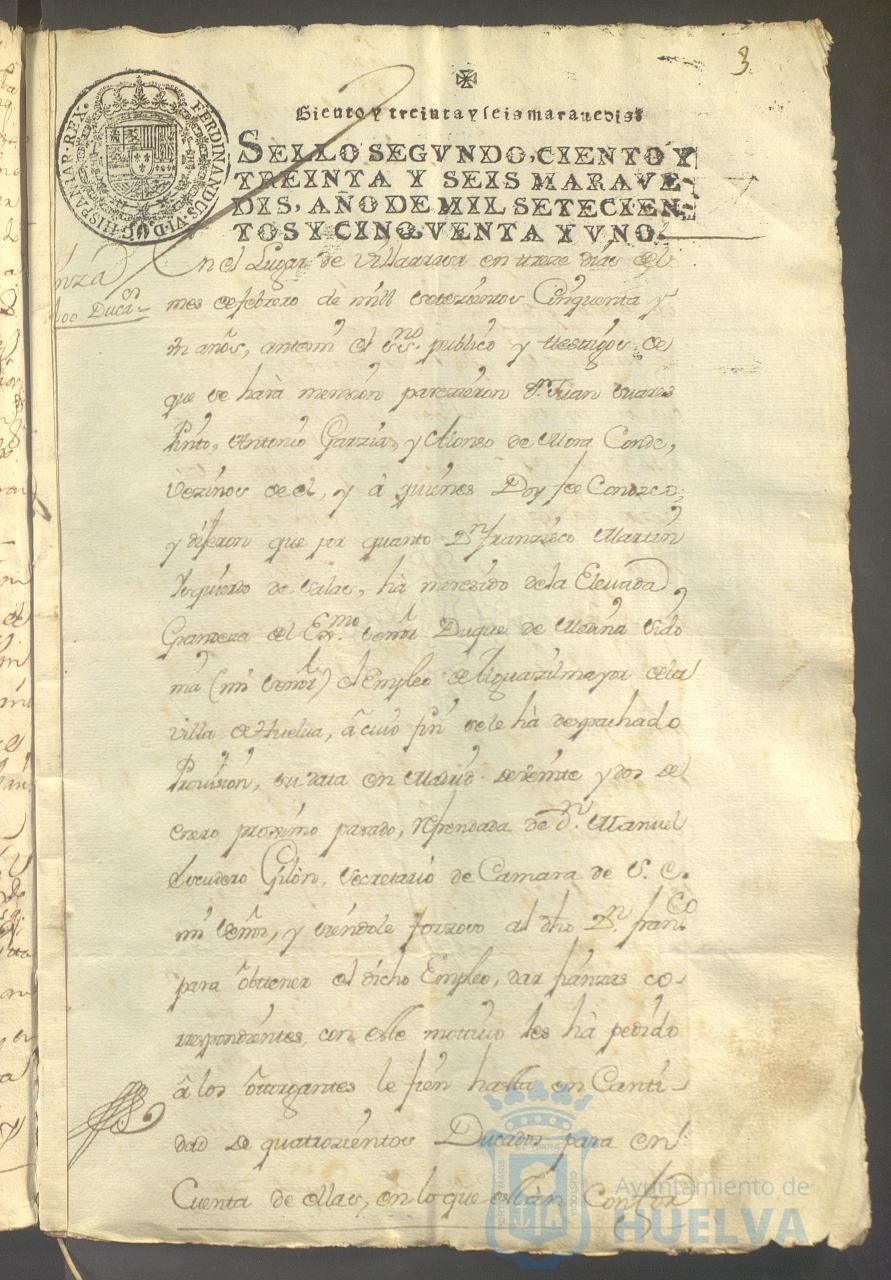 3
Ciento y treinta y seis maravedis
FERDINANDUS VI D G HISPANIAR REX
SELLO SEGVNDO, CIENTO Y
TREINTA Y SEIS MARAVE-
DIS, AÑO DE MIL SETECIEN-
TOS Y CINQVENTA Y VNO.
nza
400 Duc.os
En el Lugar de Villarrasa en treze dias del
mes de febrero de mill setezientos Cinquenta y
un años, antemi el ss.no publico y testigos de
que se harà menzion parezieron Dn. Juan suares
Pinto, Antonio Garzia, y Alonso de Mora Conde,
vezinos de el, y à quienes Doy fee Conozco;
y dijeron que por quanto Dn. franzisco Martin
Isquierdo de salas, hà meresido dela Elevada
Grandeza del Exmo. señor Duque de Medina sido
nia (mi señor) el Empleo de Alguazil mayor dela
villa de Huelva, à cuio fin se le hà despachado
Provision, su data en Madrid de veinte y dos de
enero proximo pasado, refrendada de Dn. Manuel
Escudero Gilòn, secretario de Camara de S. E.
mi señor, y siendole forzoso al dho Dn. franco.
para obtener el dicho Empleo, dar fianzas co-
rrespondientes, con este motivo les hà pedido
à los otorgantes le fien hasta en Canti-
dad de quatrozientos Ducados para en
Cuenta de ellas, en lo que estàn Confor
PORTUS MARIS ET TERRAE CUSTODIA
Ayuntamiento de
HUELVA